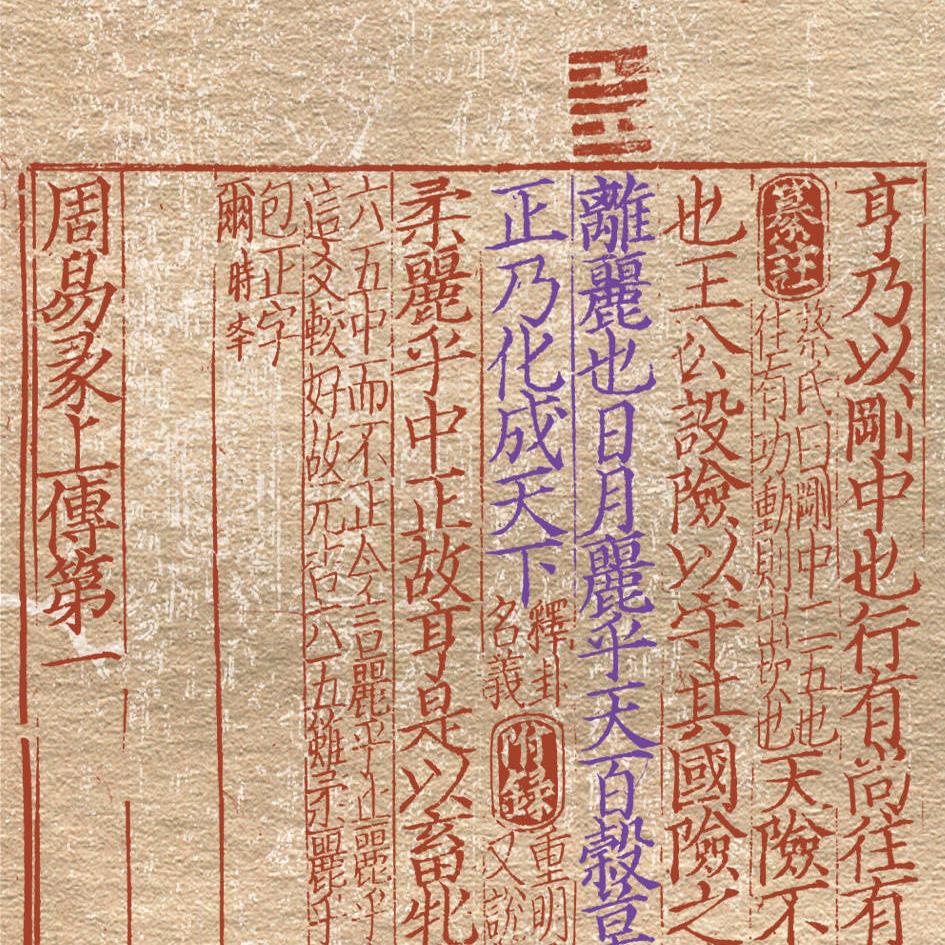 亨乃以剛中也行有尚往有
纂註
蔡氏曰剛中二五也
往有功動則出坎也
天險不
也王公設險以守其國險之
離麗也日月麗乎天百穀草
正乃化成天下
釋卦
名義
附錄
重明
又說
柔麗乎中正故亨是以畜牝
六五中而不正今言麗乎正麗乎
這爻較好故元吉六五雖柔麗乎
包正字
爾時
周易彖上傳第一